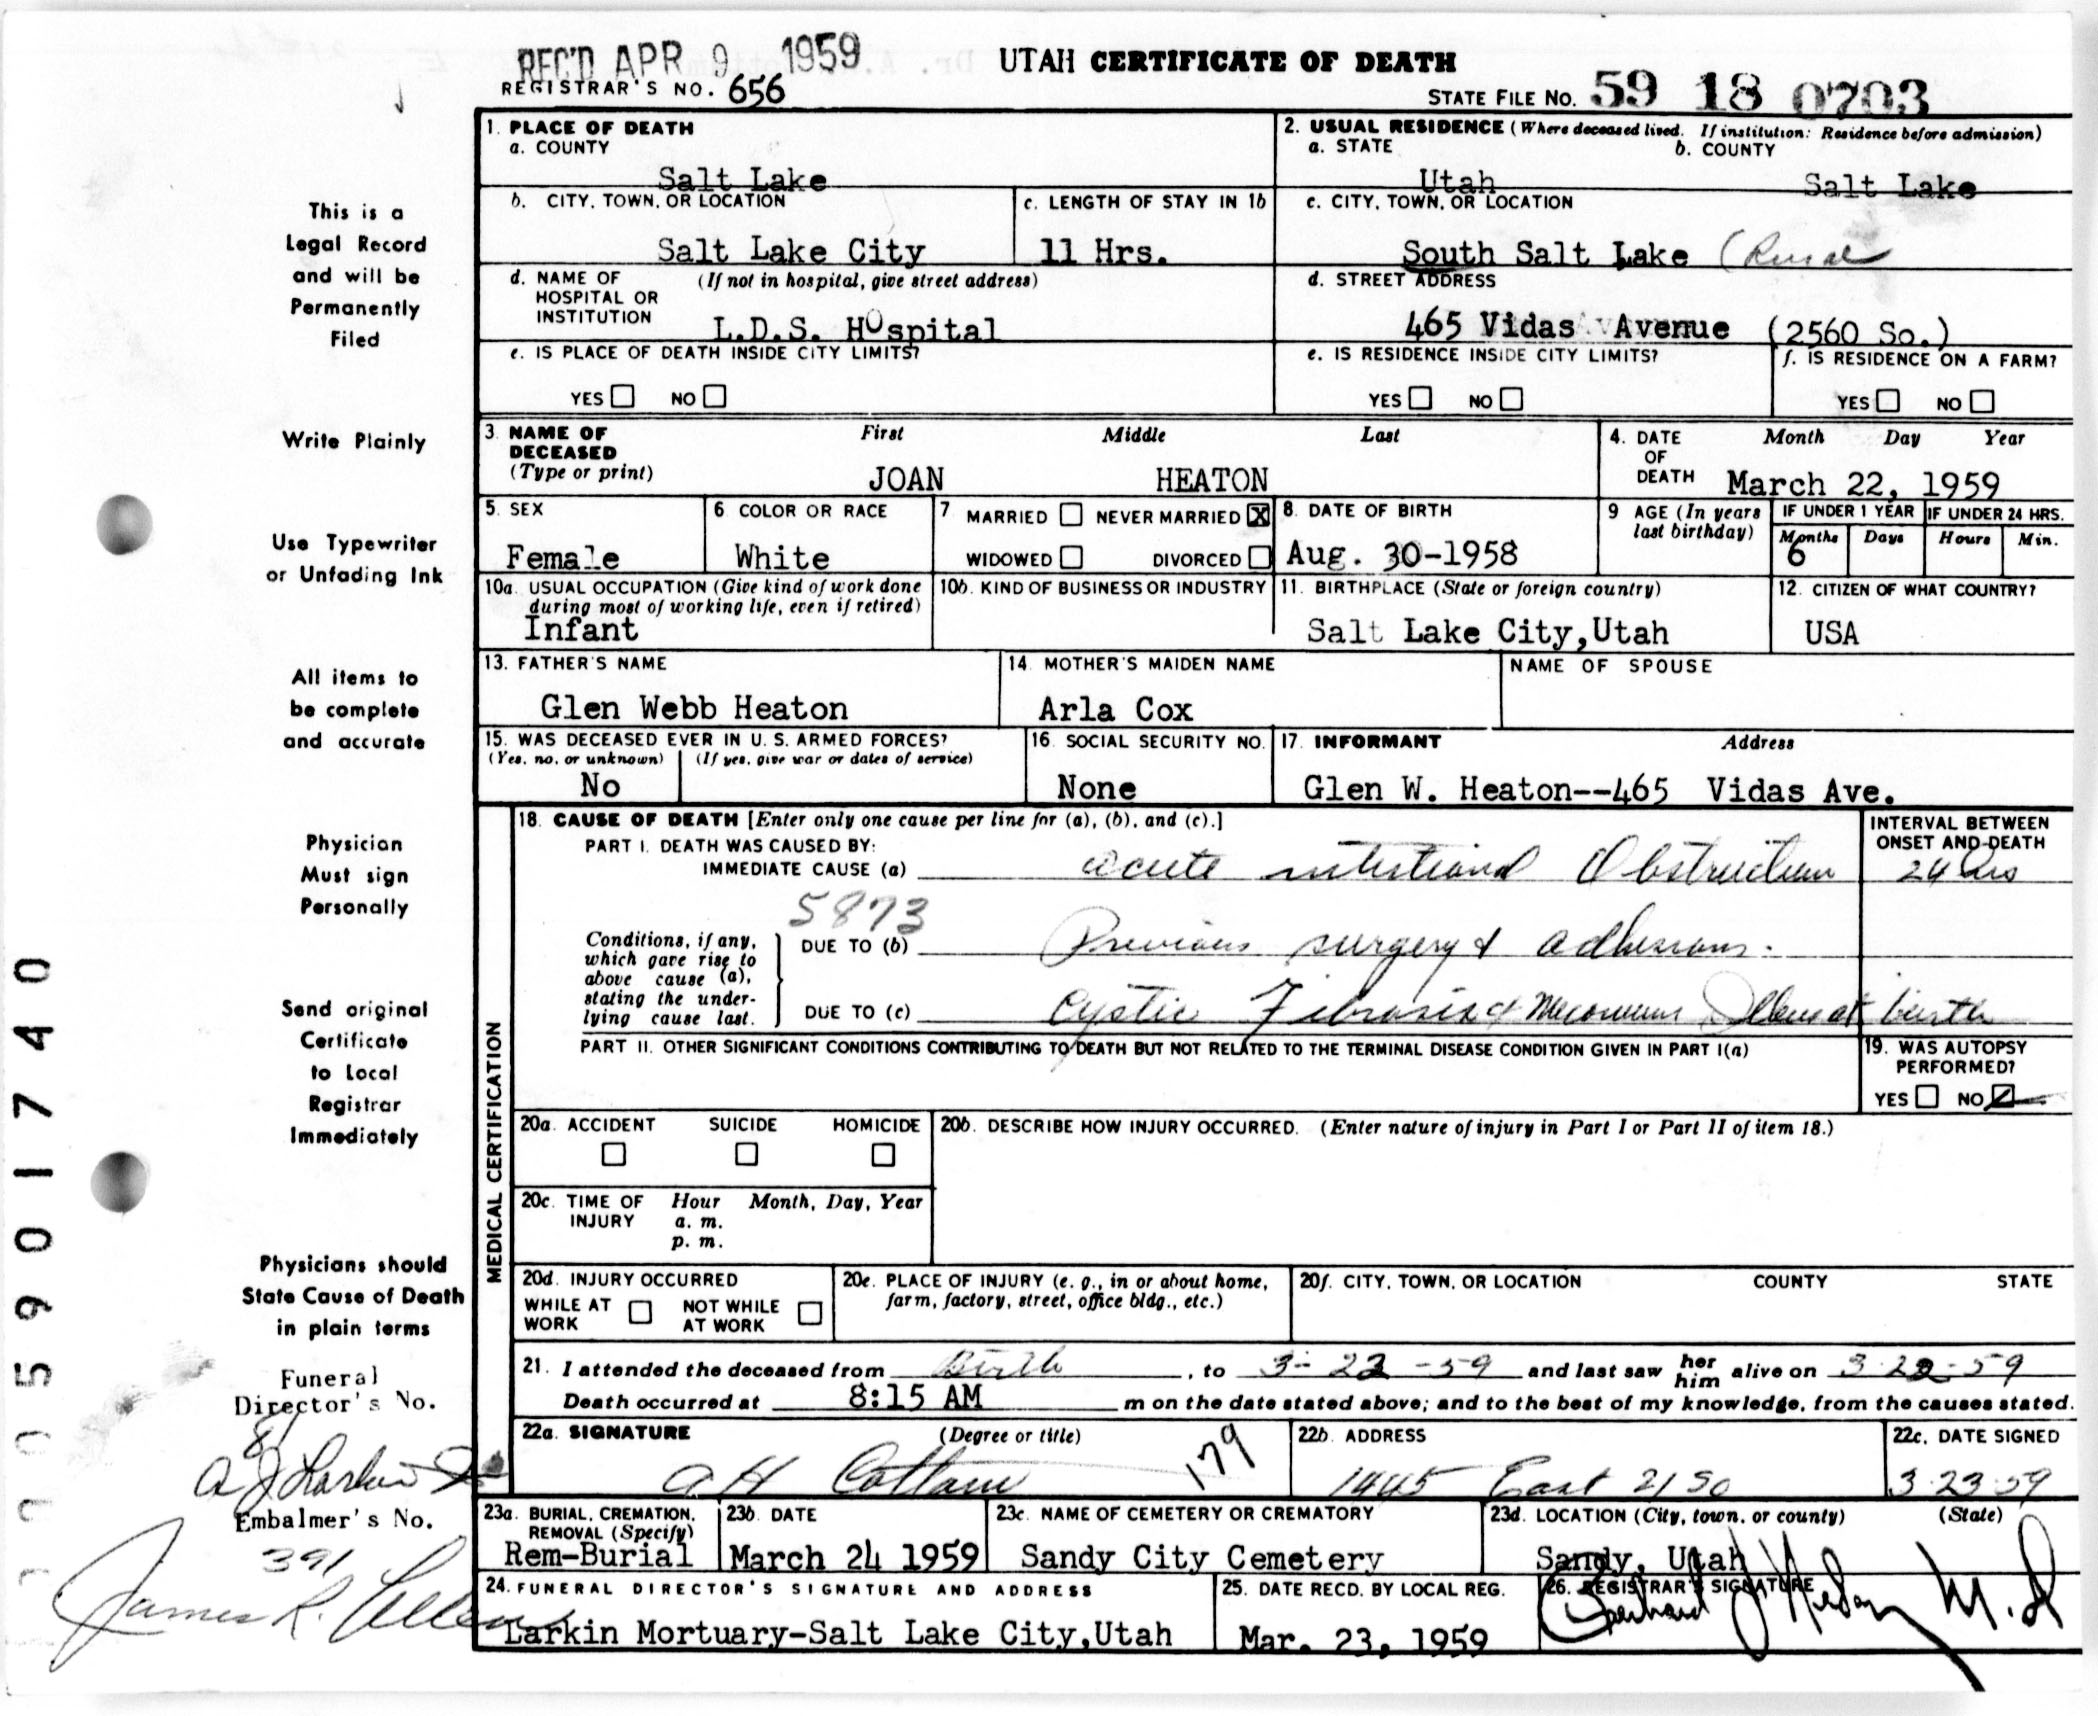 REC'D APR 9 1959
UTAH CERTIFICATE OF DEATH
REGISTRAR'S NO. 656
STATE FILE NO. 59 18 0703
1. PLACE OF DEATH
a. COUNTY
Salt Lake
2. USUAL RESIDENCE (Where deceased lived. If institution: Residence before admission)
a. STATE b. COUNTY
Utah Salt Lake
b. CITY, TOWN, OR LOCATION
Salt Lake City
c. LENGTH OF STAY IN 1b
11 Hrs.
c. CITY, TOWN, OR LOCATION
South Salt Lake (Rural
d. NAME OF HOSPITAL OR INSTITUTION (If not in hospital, give street address)
L.D.S. Hospital
d. STREET ADDRESS
465 Vidas Avenue (2560 So.)
e. IS PLACE OF DEATH INSIDE CITY LIMITS?
YES NO
e. IS RESIDENCE INSIDE CITY LIMITS?
YES NO
f. IS RESIDENCE ON A FARM?
YES NO
3. NAME OF DECEASED (Type or print) First Middle Last
JOAN HEATON
4. DATE OF DEATH Month Day Year
March 22, 1959
5. SEX
Female
6 COLOR OR RACE
White
7 MARRIED NEVER MARRIED X
WIDOWED DIVORCED
8. DATE OF BIRTH
Aug. 30-1958
9 AGE (In years last birthday)
IF UNDER 1 YEAR IF UNDER 24 HRS.
Months Days Hours Min.
6
10a. USUAL OCCUPATION (Give kind of work done during most of working life, even if retired)
Infant
10b. KIND OF BUSINESS OR INDUSTRY
11. BIRTHPLACE (State or foreign country)
Salt Lake City,Utah
12. CITIZEN OF WHAT COUNTRY?
USA
13. FATHER'S NAME
Glen Webb Heaton
14. MOTHER'S MAIDEN NAME
Arla Cox
NAME OF SPOUSE
15. WAS DECEASED EVER IN U. S. ARMED FORCES?
(Yes, no, or unknown) (If yes, give war or dates of service)
No
16. SOCIAL SECURITY NO.
None
17. INFORMANT Address
Glen W. Heaton--465 Vidas Ave.
MEDICAL CERTIFICATION
18. CAUSE OF DEATH [Enter only one cause per line for (a), (b), and (c).]
INTERVAL BETWEEN ONSET AND DEATH
PART I. DEATH WAS CAUSED BY:
IMMEDIATE CAUSE (a) acute intestinal Obstruction 24 hrs
5873
Conditions, if any, which gave rise to above cause (a), stating the underlying cause last.
DUE TO (b) Previous surgery & adhesions.
DUE TO (c) Cystic Fibrosis & Meconium Ileus at birth
PART II. OTHER SIGNIFICANT CONDITIONS CONTRIBUTING TO DEATH BUT NOT RELATED TO THE TERMINAL DISEASE CONDITION GIVEN IN PART I(a)
19. WAS AUTOPSY PERFORMED?
YES NO
20a. ACCIDENT SUICIDE HOMICIDE
20b. DESCRIBE HOW INJURY OCCURRED. (Enter nature of injury in Part I or Part II of item 18.)
20c. TIME OF INJURY Hour Month, Day, Year
a. m.
p. m.
20d. INJURY OCCURRED
WHILE AT WORK NOT WHILE AT WORK
20e. PLACE OF INJURY (e. g., in or about home, farm, factory, street, office bldg., etc.)
20f. CITY, TOWN, OR LOCATION COUNTY STATE
21. I attended the deceased from Birth, to 3-22-59 and last saw her him alive on 3-22-59
Death occurred at 8:15 AM m on the date stated above; and to the best of my knowledge, from the causes stated.
22a. SIGNATURE (Degree or title)
A H Cottam 179
22b. ADDRESS
1445 East 21 So
22c. DATE SIGNED
3-23-59
23a. BURIAL, CREMATION, REMOVAL (Specify)
Rem-Burial
23b. DATE
March 24 1959
23c. NAME OF CEMETERY OR CREMATORY
Sandy City Cemetery
23d. LOCATION (City, town, or county) (State)
Sandy, Utah
24. FUNERAL DIRECTOR'S SIGNATURE AND ADDRESS
Larkin Mortuary-Salt Lake City,Utah
25. DATE RECD. BY LOCAL REG.
Mar. 23, 1959
26. REGISTRAR'S SIGNATURE
This is a
Legal Record
and will be
Permanently
Filed
Write Plainly
Use Typewriter
or Unfading Ink
All items to
be complete
and accurate
Physician
Must sign
Personally
Send original
Certificate
to Local
Registrar
Immediately
Physicians should
State Cause of Death
in plain terms
Funeral
Director's No.
81
A J Larkin Jr
Embalmer's No.
391
James R. Allen
005901740